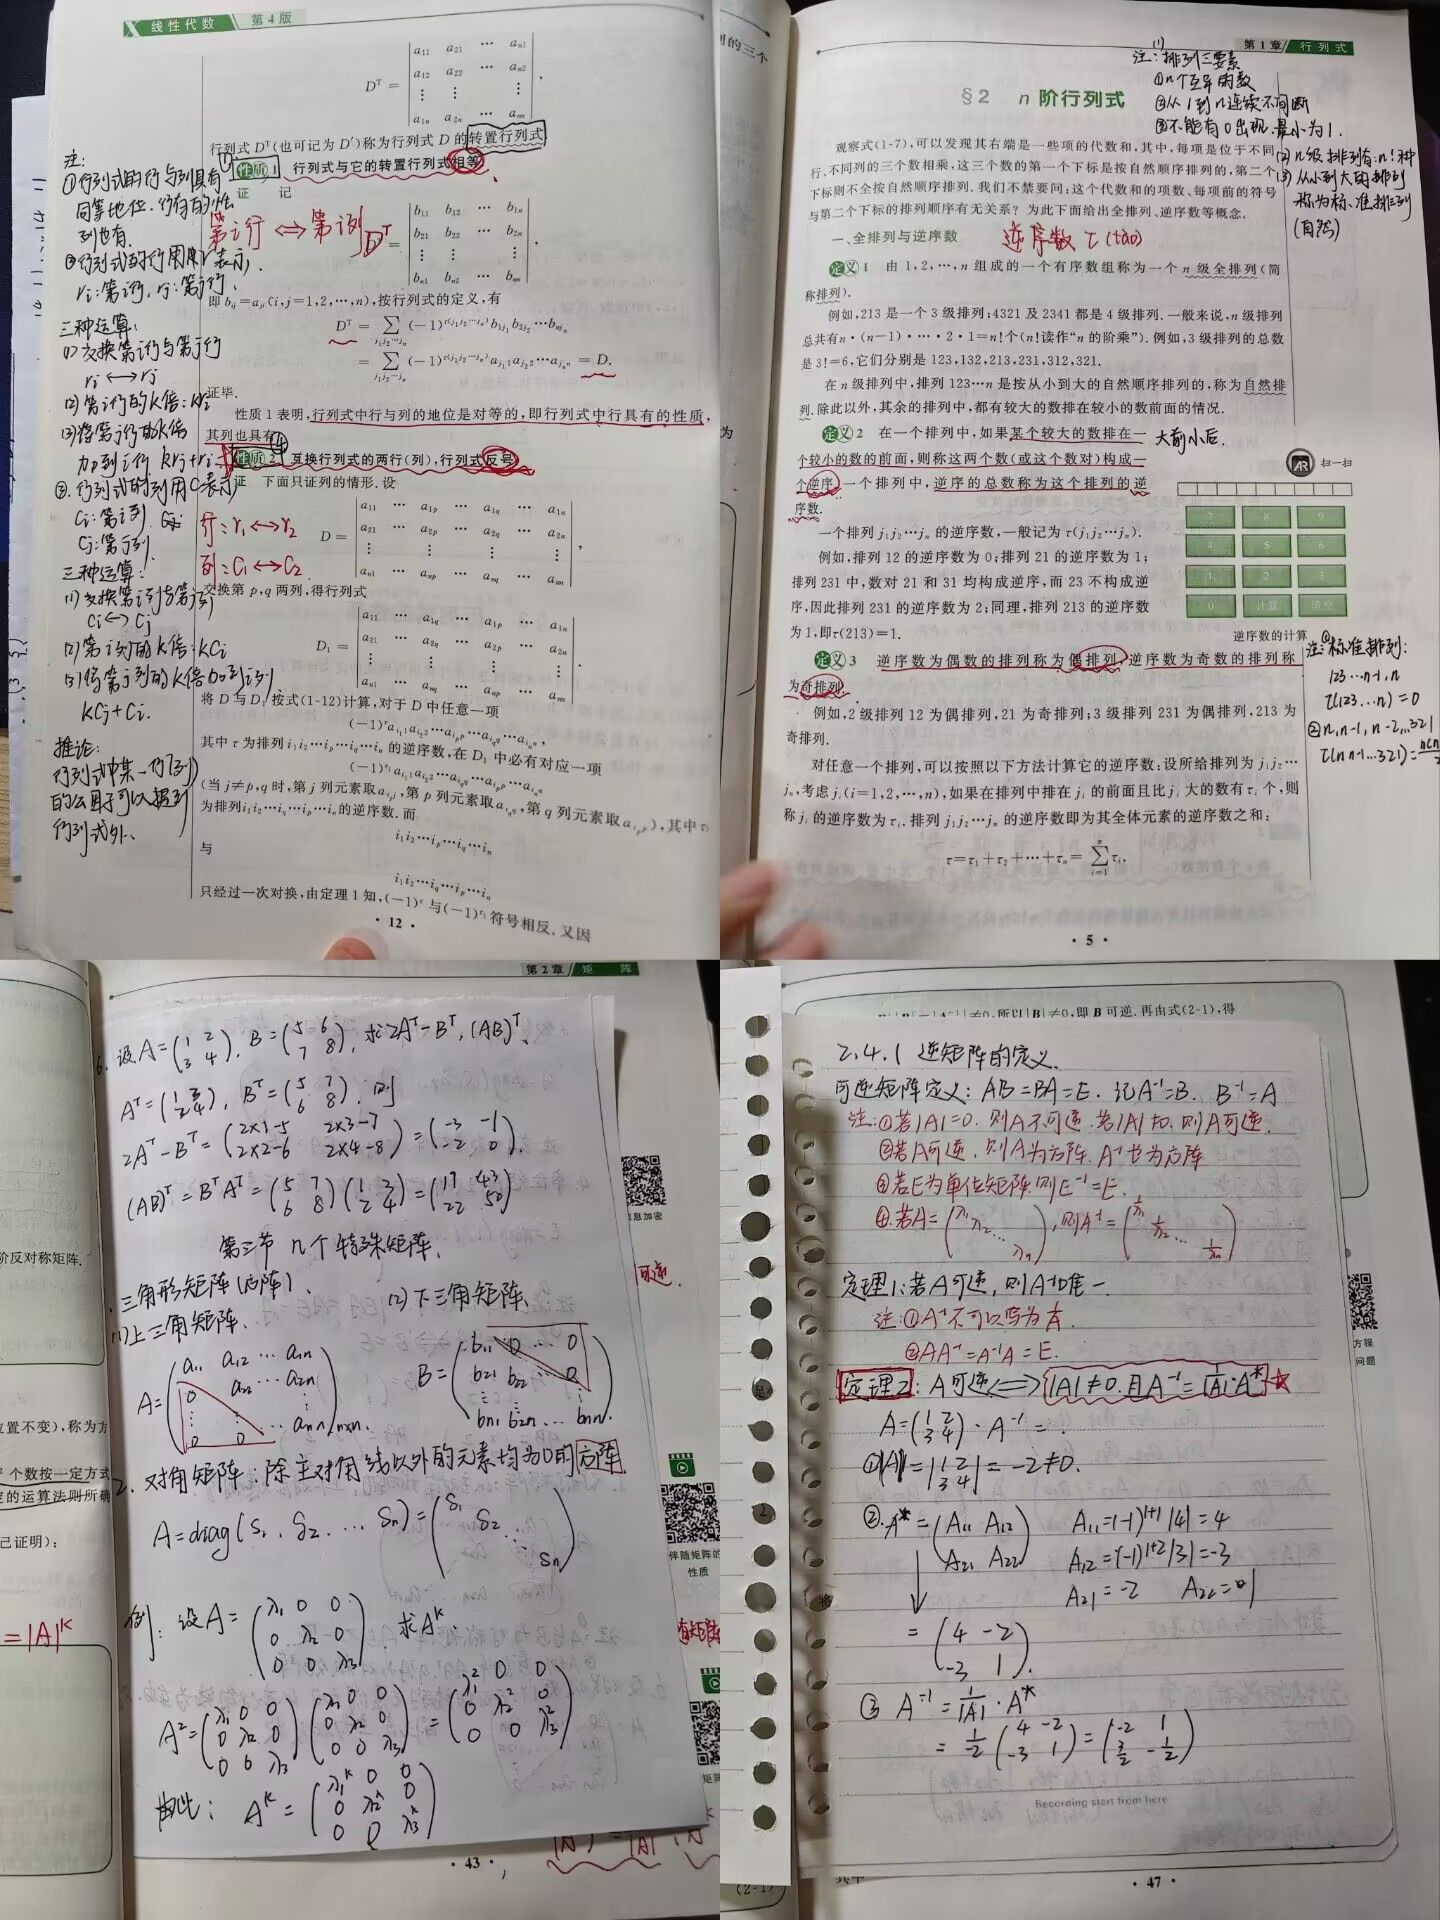 线性代数 第4版
D^T = | a11 a21 ⋯ an1 |
| a12 a22 ⋯ an2 |
| ⋮ ⋮ ⋮ |
| a1n a2n ⋯ ann | ,
行列式 D^T(也可记为 D′)称为行列式 D 的转置行列式
性质1 行列式与它的转置行列式相等.
证 记
第i行⇔第i列
D^T = | b11 b12 ⋯ b1n |
| b21 b22 ⋯ b2n |
| ⋮ ⋮ ⋮ |
| bn1 bn2 ⋯ bnn | ,
即 bij=aji(i,j=1,2,⋯,n),按行列式的定义,有
D^T = ∑ (-1)^τ(j1j2⋯jn) b1j1 b2j2 ⋯ bnjn
j1j2⋯jn
= ∑ (-1)^τ(j1j2⋯jn) aj11 aj22 ⋯ ajnn = D.
j1j2⋯jn
证毕.
性质1表明,行列式中行与列的地位是对等的,即行列式中行具有的性质,
其列也具有
性质2 互换行列式的两行(列),行列式反号
证 下面只证列的情形.设
行:r1↔r2
列:C1↔C2
D = | a11 ⋯ a1p ⋯ a1q ⋯ a1n |
| a21 ⋯ a2p ⋯ a2q ⋯ a2n |
| ⋮ ⋮ ⋮ ⋮ |
| an1 ⋯ anp ⋯ anq ⋯ ann | ,
交换第 p,q 两列,得行列式
D1 = | a11 ⋯ a1q ⋯ a1p ⋯ a1n |
| a21 ⋯ a2q ⋯ a2p ⋯ a2n |
| ⋮ ⋮ ⋮ ⋮ |
| an1 ⋯ anq ⋯ anp ⋯ ann | .
将 D 与 D1 按式(1-12)计算,对于 D 中任意一项
(-1)^τ ai11 ai22 ⋯ aipp ⋯ aiqq ⋯ ainn,
其中 τ 为排列 i1i2⋯ip⋯iq⋯in 的逆序数,在 D1 中必有对应一项
(-1)^τ1 ai11 ai22 ⋯ aiqq ⋯ aipp ⋯ ainn
(当 j≠p,q 时,第 j 列元素取aijj,第 p 列元素取aiqq,第 q 列元素取aipp),其中 τ1
为排列i1i2⋯iq⋯ip⋯in的逆序数.而
i1i2⋯ip⋯iq⋯in
与
i1i2⋯iq⋯ip⋯in
只经过一次对换,由定理1知,(-1)^τ 与(-1)^τ1 符号相反.又因
· 12 ·
注:
①行列式的行与列具有
同等地位.行有的性
列也有.
②行列式的行用r表示,
ri:第i行, rj:第j行.
三种运算:
(1)交换第i行与第j行
ri↔rj
(2)第i行的K倍:Kri
(3)将第j行的K倍
加到i行 krj+ri
③.行列式的列用C表示
Ci:第i列
Cj:第j列
三种运算:
(1)交换第i列与第j列
Ci↔Cj
(2)第i列的K倍:KCi
(3)将第j列的K倍加到i列
KCj+Ci.
推论:
行列式中某一行(列)
的公因子可以提到
行列式外.
第1章 行列式
注:排列三要素
①n个互异的数
②从1到n连续不间断
③不能有0出现.最小为1.
(2)n级排列有:n!种
(3)从小到大的排列
称为标准排列
(自然)
§2 n 阶行列式
观察式(1-7),可以发现其右端是一些项的代数和,其中,每项是位于不同
行、不同列的三个数相乘,这三个数的第一个下标是按自然顺序排列的,第二个
下标则不全按自然顺序排列.我们不禁要问:这个代数和的项数、每项前的符号
与第二个下标的排列顺序有无关系?为此下面给出全排列、逆序数等概念.
一、全排列与逆序数
逆序数τ(tao)
定义1 由 1,2,⋯,n 组成的一个有序数组称为一个 n 级全排列(简
称排列).
例如,213 是一个 3 级排列;4321 及 2341 都是 4 级排列.一般来说,n 级排列
总共有n·(n-1)·⋯·2·1=n!个(n!读作“n 的阶乘”).例如,3 级排列的总数
是 3!=6,它们分别是 123,132,213,231,312,321.
在 n 级排列中,排列 123⋯n 是按从小到大的自然顺序排列的,称为自然排
列.除此以外,其余的排列中,都有较大的数排在较小的数前面的情况.
定义2 在一个排列中,如果某个较大的数排在一
大前小后.
个较小的数的前面,则称这两个数(或这个数对)构成一
个逆序.一个排列中,逆序的总数称为这个排列的逆
序数.
AR 扫一扫
7 8 9
4 5 6
1 2 3
0 计算 清空
逆序数的计算
一个排列 j1j2⋯jn 的逆序数,一般记为 τ(j1j2⋯jn).
例如,排列 12 的逆序数为 0;排列 21 的逆序数为 1;
排列 231 中,数对 21 和 31 均构成逆序,而 23 不构成逆
序,因此排列 231 的逆序数为 2;同理,排列 213 的逆序数
为 1,即τ(213)=1.
定义3 逆序数为偶数的排列称为偶排列,逆序数为奇数的排列称
为奇排列.
例如,2 级排列 12 为偶排列,21 为奇排列;3 级排列 231 为偶排列,213 为
奇排列.
对任意一个排列,可以按照以下方法计算它的逆序数:设所给排列为 j1j2⋯
jn,考虑 ji(i=1,2,⋯,n),如果在排列中排在 ji 的前面且比 ji 大的数有 τi 个,则
称 ji 的逆序数为 τi.排列 j1j2⋯jn 的逆序数即为其全体元素的逆序数之和:
τ=τ1+τ2+⋯+τn=∑τi.
· 5 ·
注:①标准排列:
123⋯n-1,n
τ(123⋯n)=0
②n,n-1,n-2,⋯321
τ(n n-1⋯321)=
第2章 矩 阵
6. 设A=(1 2; 3 4), B=(5 6; 7 8), 求2A^T-B^T, (AB)^T.
A^T=(1 3; 2 4), B^T=(5 7; 6 8), 则
2A^T-B^T=(2×1-5 2×3-7; 2×2-6 2×4-8)=(-3 -1; -2 0).
(AB)^T=B^T A^T=(5 7; 6 8)(1 3; 2 4)=(17 43; 22 50)
第三节 几个特殊矩阵.
三角形矩阵(方阵).
(1)上三角矩阵. (2)下三角矩阵.
A=(a11 a12 ⋯ a1n; 0 a22 ⋯ a2n; ⋮ ⋮ ⋱; 0 0 ⋯ ann)n×n.
B=(b11 0 ⋯ 0; b21 b22 ⋯ 0; ⋮ ⋮ ⋮; bn1 bn2 ⋯ bnn).
2. 对角矩阵:除主对角线以外的元素均为0的方阵
A=diag(S1, S2, ⋯ Sn)=(S1 S2 ⋱ Sn)
例:设A=(λ1 0 0; 0 λ2 0; 0 0 λ3) 求A^K.
A²=(λ1 0 0; 0 λ2 0; 0 0 λ3)(λ1 0 0; 0 λ2 0; 0 0 λ3)=(λ1² 0 0; 0 λ2² 0; 0 0 λ3²)
由此: A^K=(λ1^K 0 0; 0 λ2^K 0; 0 0 λ3^K)
阶反对称矩阵.
位置不变),称为方
个数按一定方式
定的运算法则所确
己证明):
=|A|^K
伴随矩阵的
性质
· 43 ·
≠0,所以|B|≠0,即 B 可逆.再由式(2-1),得
2.4.1 逆矩阵的定义.
可逆矩阵定义: AB=BA=E. 记A⁻¹=B. B⁻¹=A
注:①若|A|=0.则A不可逆.若|A|≠0.则A可逆.
②若A可逆,则A为方阵.A⁻¹也为方阵
③若E为单位矩阵.则E⁻¹=E.
④.若A=(λ1 λ2 ⋱ λn),则A⁻¹=(1/λ1 1/λ2 ⋱ 1/λn)
定理1:若A可逆,则A⁻¹唯一
注:①A⁻¹不可以写为1/A.
②AA⁻¹=A⁻¹A=E.
定理2:A可逆⇔|A|≠0.且A⁻¹=1/|A|·A*
A=(1 2; 3 4)·A⁻¹=.
①|A|=|1 2; 3 4|=-2≠0.
②.A*=(A11 A12; A21 A22) A11=(-1)^(1+1)|4|=4
A12=(-1)^(1+2)|3|=-3
A21=-2
=(4 -2; -3 1).
③ A⁻¹=1/|A|·A*
=1/-2(4 -2; -3 1)=(-2 1; 3/2 -1/2)
Recording start from here
方程
问题
· 47 ·
(2-1)